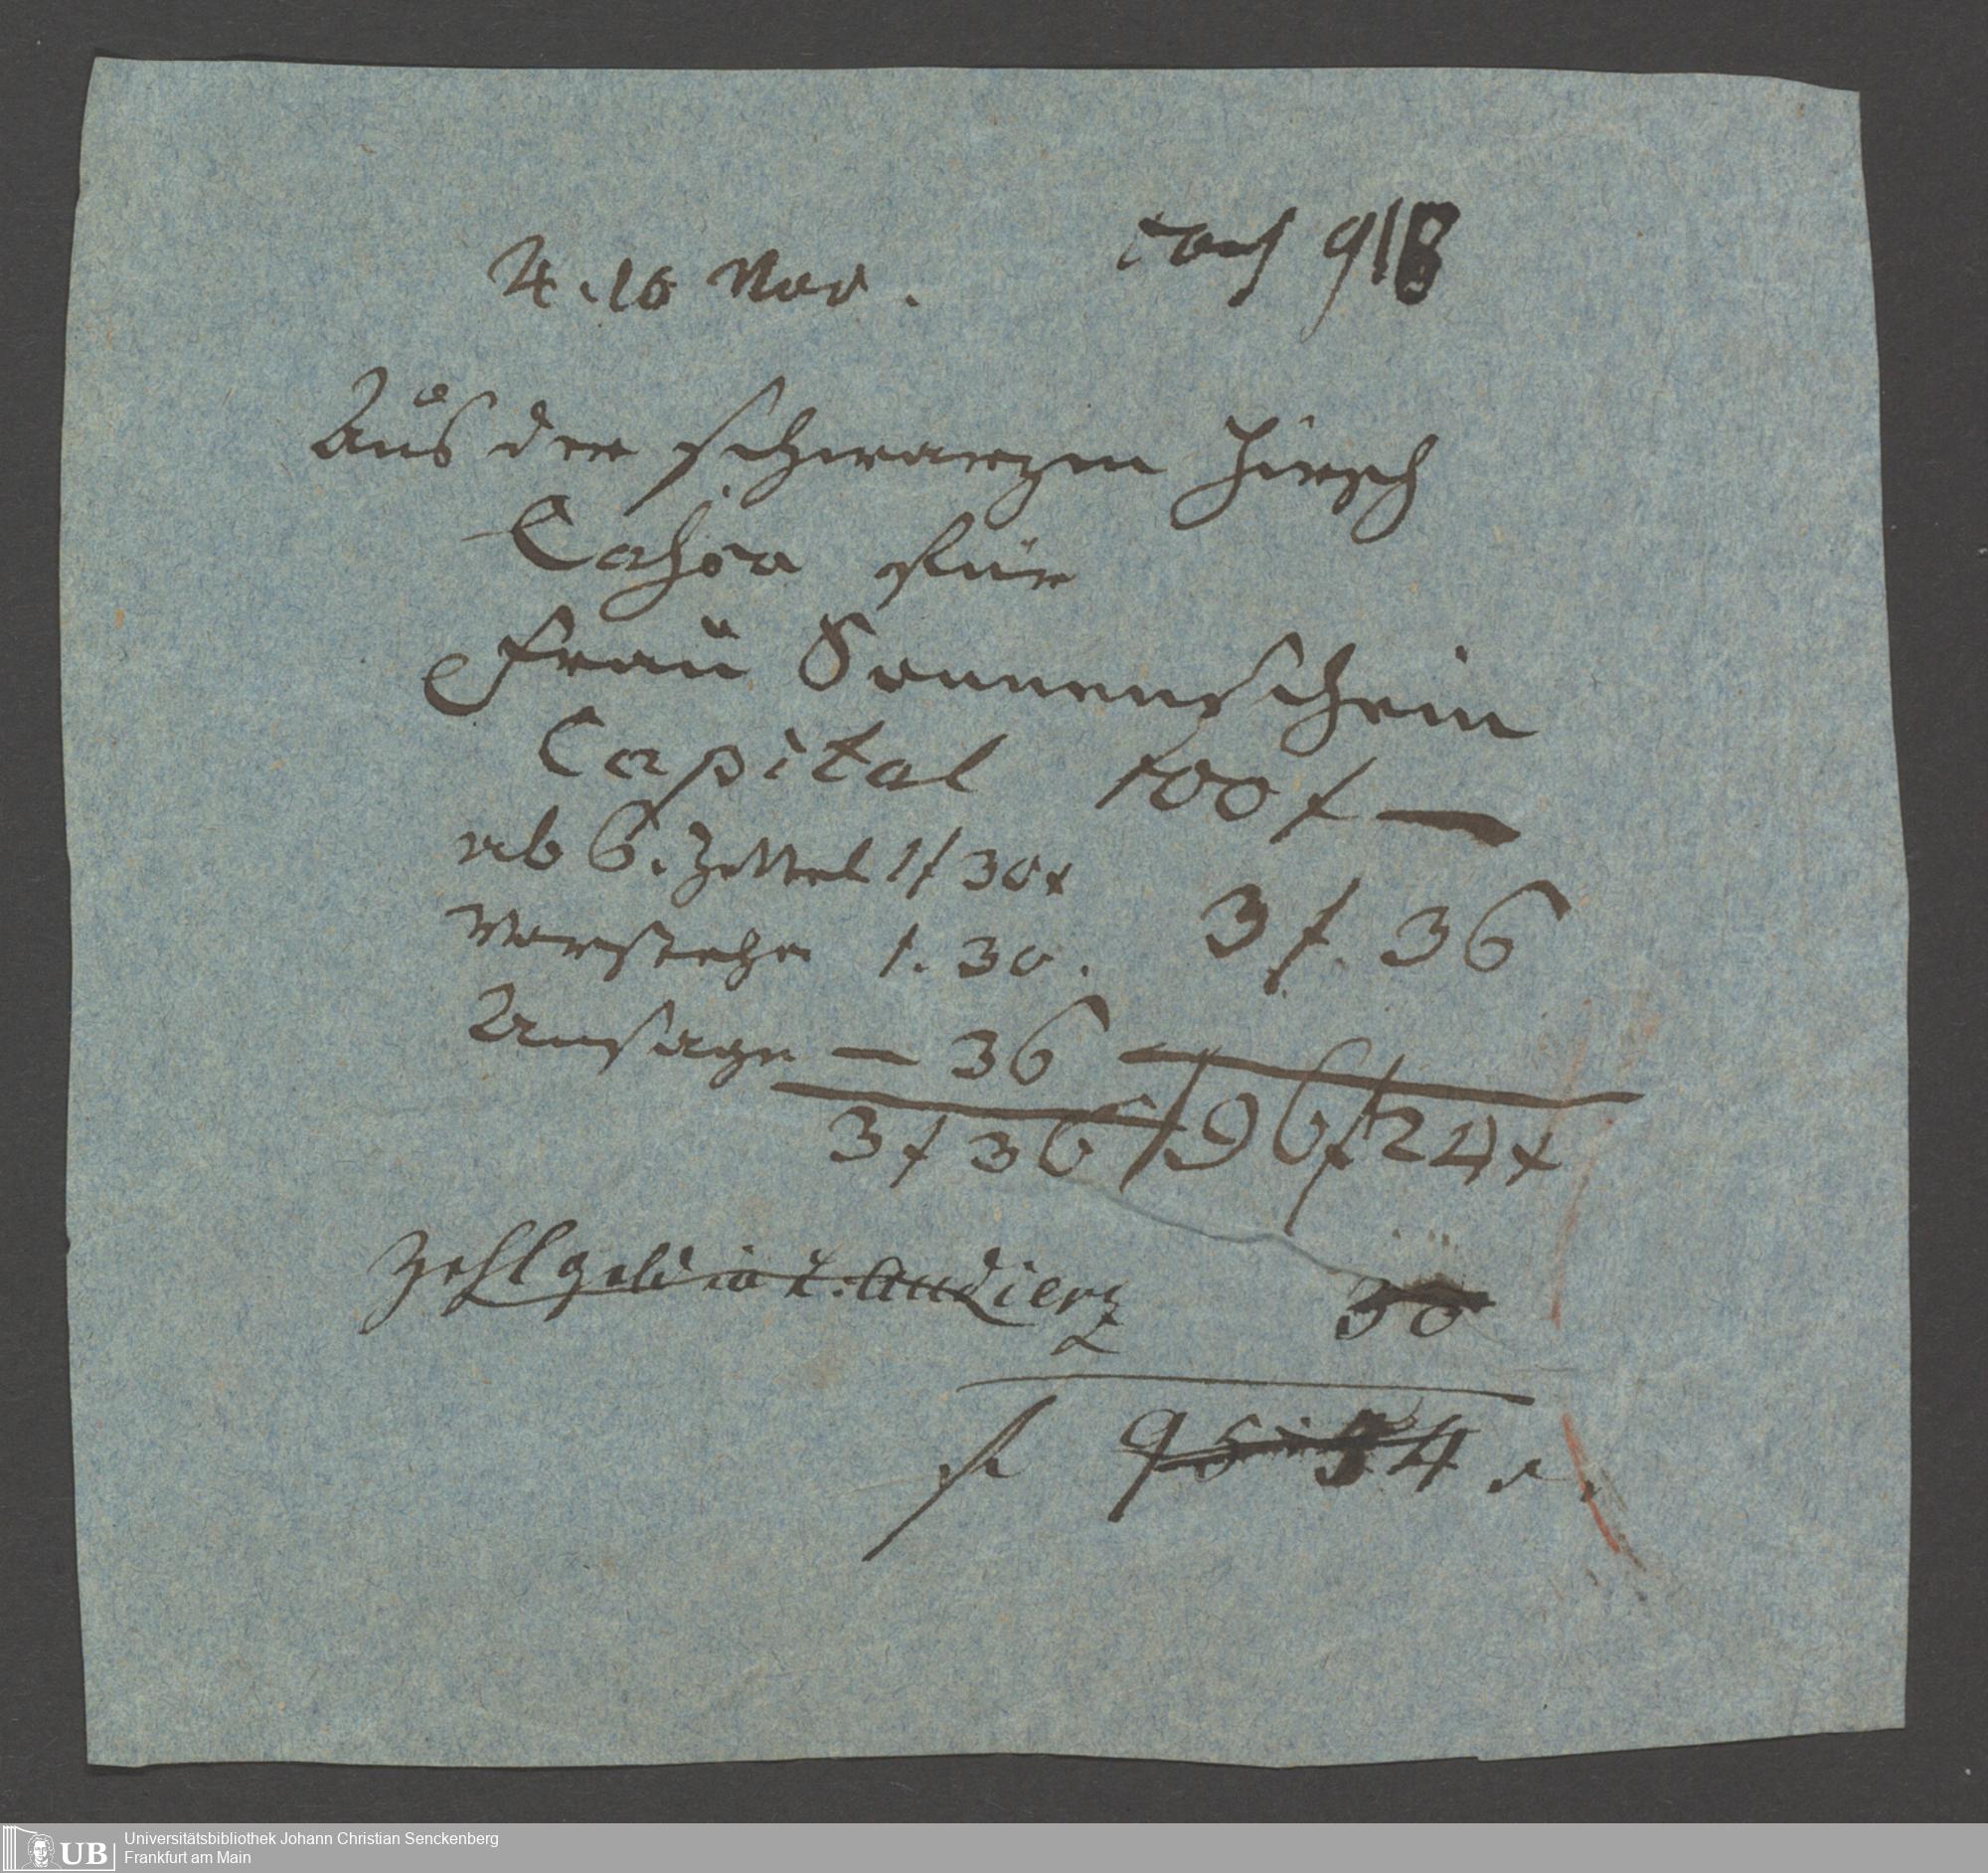 4. 10 Nov. 918
Aus der schwarzen Hirsch
Cassa für
Frau Sonnenschein
Capital 100 f —
ab 6. Zettel 1 f 30 x
Vorsteher 1. 30. 3 f. 36
Ansage — 36
3 f 36 96 f 24 x
Zehlgeld
30
f 95 54 x.
UB
Universitätsbibliothek Johann Christian Senckenberg
Frankfurt am Main